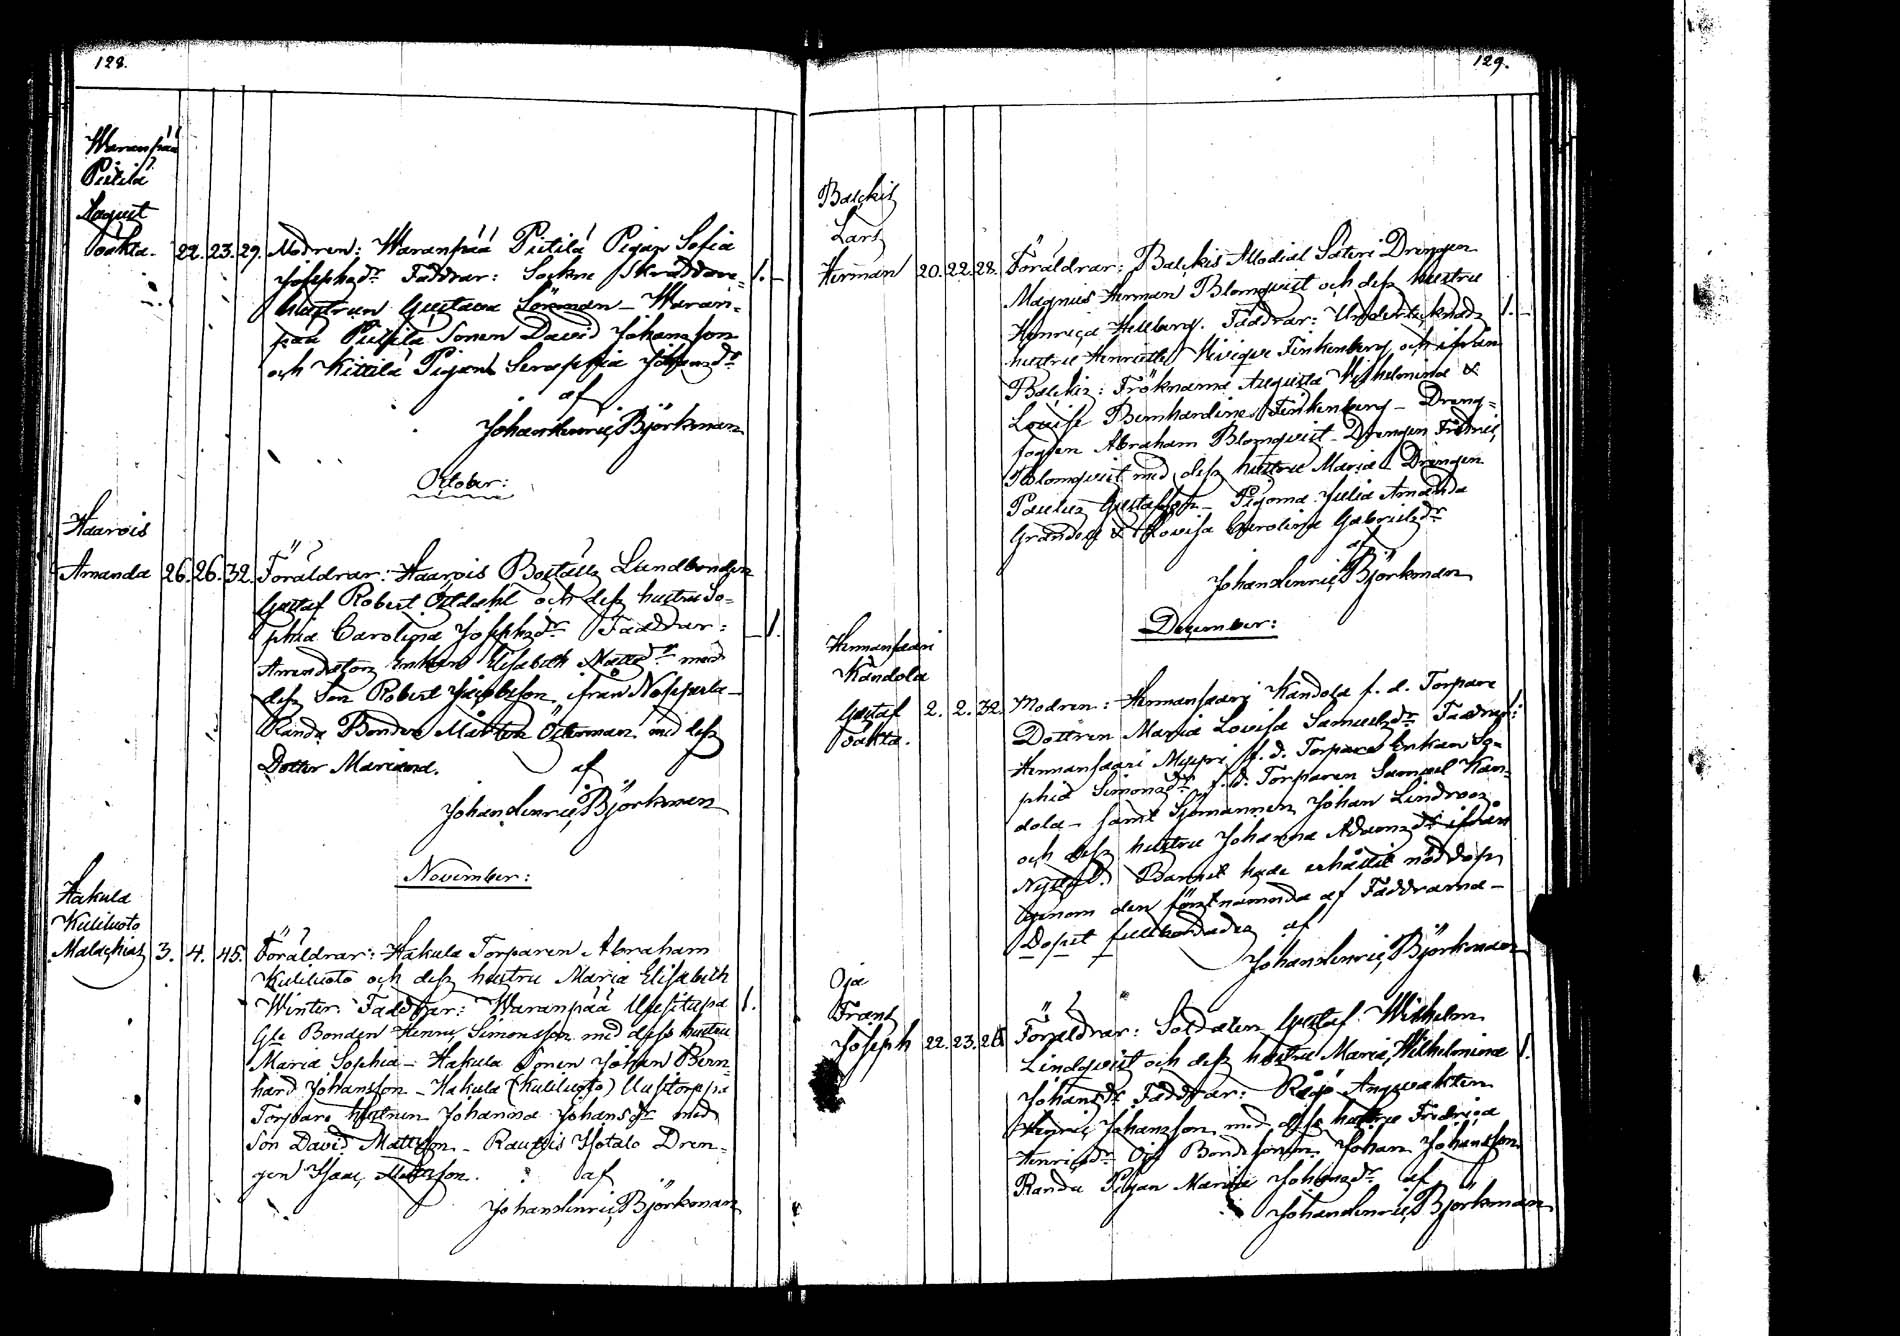 128.
Waranpää
Pietilä
August
oäkta. 22. 23. 29. Modren: Waranpää Pietilä Pigan Sofia
Josephsdr Faddrar: Sockne Skräddare= 1. –
hustrun Gustava Sörman – Waran=
pää Pietilä Sonen David Johansson
och Kittilä Pigan Seraphia Johansdr
af
Johan Henric Björkman
October:
Haarois
Amanda 26. 26. 32. Föräldrar: Haarois Boställs Landbonden
Gustaf Robert Östdahl och dess hustru So=
phia Carolina Josephsdr Faddrar: – 1.
Arrendators Enkan Elisabeth Mattsdr med
dess Son Robert Jacobsson ifrån Nopperla –
Randa Bonden Mårten Österman med dess
Dotter Mariana.
af
Johan Henric Björkman
November:
Hakula
Kuliluoto
Malachias 3. 4. 45. Föräldrar: Hakula Torparen Abraham
Kuliluoto och dess hustru Maria Elisabeth
Winter. Faddrar: Waranpää Uusitupa 1.
Gle Bonden Henric Simonsson med dess hustru
Maria Sophia – Hakula Sonen Johan Bern=
hard Johansson – Hakula (Kuliluoto) Uustorppa
Torpare hustrun Johanna Johansdr med
Son David Mattsson – Rautois Isotalo Dren=
gen Isaac Mattsson.
af
Johan Henric Björkman
129.
Balckis
Lars
Herman 20. 22. 28. Föräldrar: Balckis Allodial Säteri Drengen
Magnus Herman Blomqvist och dess hustru
Henrica Hellberg. Faddrar: Undertecknads 1. –
hustru Henriette Finkenberg, och ifrån
Balckis: Fröknarna Augusta Wilhelmina &
Louise Bernhardine Finkenberg – Dreng=
fogden Abraham Blomqvist – Drengen Fredric
Blomqvist med dess hustru Maria – Drengen
Paulus Gustafsson – Pigorna Julia Amanda
Grandell & Lovisa Carolina Gabrielsdr
af
Johan Henric Björkman
December:
Hermansaari
Kandola
Gustaf 2. 2. 32. Modren: Hermansaari Kandola f. d. Torpare
oäkta. Dottren Maria Lovisa Samuelsdr Faddrar: 1.
Hermansaari f. d. Torpare Enkan So=
phia Simonsdr f. d. Torparen Samuel Kan=
dola – samt Sjömannen Johan Lindroos
och dess hustru Johanna Adamsdr ifrån
Nystad. Barnet hade erhållit nöddop
genom den förstnämnda af Faddrarna –
Dopet fullbordades af
Johan Henric Björkman
Oja
Frans
Joseph 22. 23. 28 Föräldrar: Soldaten Gustaf Wilhelm
Lindqvist och dess hustru Maria Wilhelmina 1.
Johansdr Faddrar: Ängvakten
Henric Johansson med dess hustru Fredrica
Henricsdr Oja Bondsonen Johan Johansson
Randa Pigan Maria Johansdr af
Johan Henric Björkman